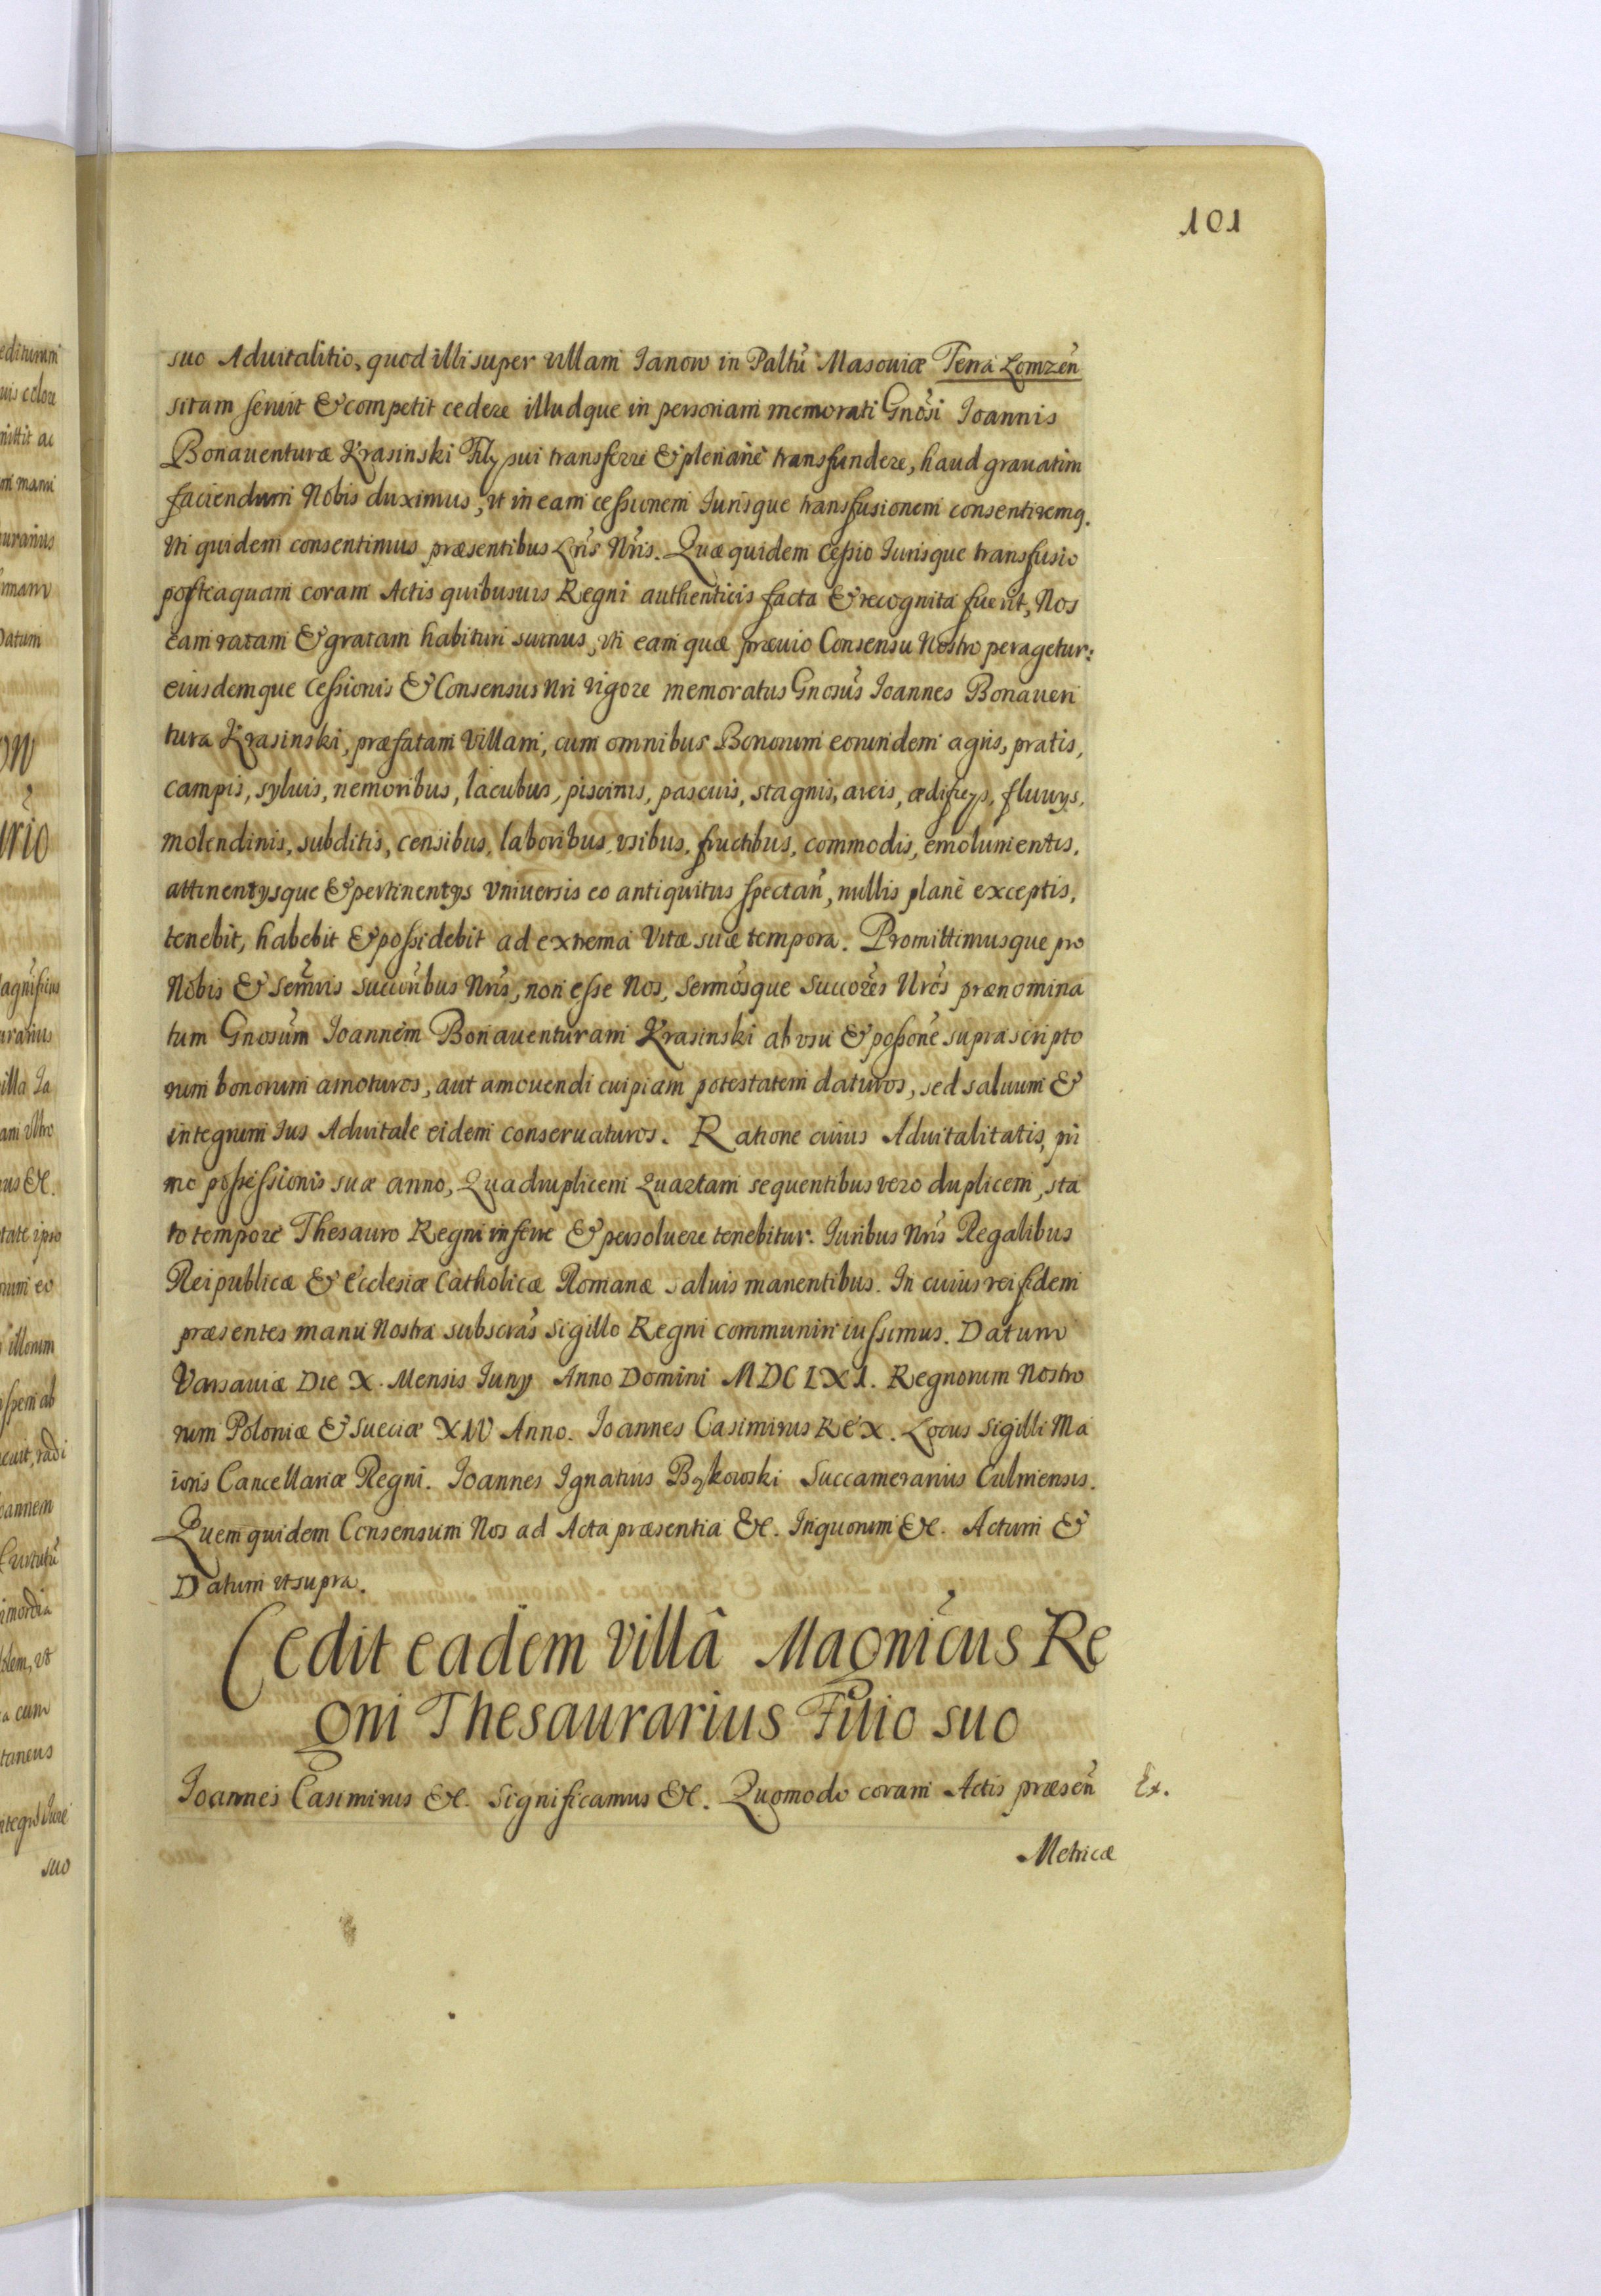 101
suo Aduitalitio, quod illi super villam Ianow in Paltũ Masouiæ Terra Lomzeñ
sitam seruit & competit cedere illudque in personam memorati Gnosi Ioannis
Bonauenturæ Krasinski Filÿ sui transferre & plenariè transfundere, haud grauatim
faciendum Nobis duximus, vt in eam cessionem Iurisque transfusionem consentiremq.
Vti quidem consentimus præsentibus Lris Nris. Quæ quidem Cessio Iurisque transfusio
posteaquam coram Actis quibusuis Regni authenticis facta & recognita fuerit, Nos
eam ratam & gratam habituri sumus, vti eam quæ præuio Consensu Nostro peragetur:
eiusdemque Cessionis & Consensus Nri vigore memoratus Gnosus Ioannes Bonauen
tura Krasinski, præfatam Villam, cum omnibus Bonorum eorundem agris, pratis,
campis, syluis, nemoribus, lacubus, piscinis, pascuis, stagnis, areis, ædificÿs, fluuÿs,
molendinis, subditis, censibus, laboribus, vsibus, fructibus, commodis, emolumentis,
attinentÿsque & pertinentÿs Vniuersis eo antiquitus spectañ, nullis planè exceptis,
tenebit, habebit & possidebit ad extrema Vitæ suæ tempora. Promittimusque pro
Nobis & Sermis succribus Nris, non esse Nos, Sermosque Succores Nros prænomina
tum Gnosum Ioannem Bonauenturam Krasinski ab vsu & possone suprascripto
rum bonorum amoturos, aut amouendi cuipiam potestatem daturos, sed saluum &
integrum Ius Aduitale eidem conseruaturos. Ratione cuius Aduitalitatis, pri
mo possessionis suæ anno, Quadruplicem Quartam sequentibus vero duplicem, sta
to tempore Thesauro Regni inferre & persoluere tenebitur. Iuribus Nris Regalibus
Reipublicæ & Ecclesiæ Catholicæ Romanæ saluis manentibus. In cuius rei fidem
præsentes manu Nostra subscras sigillo Regni communiri iussimus. Datum
Varsauiæ Die X. Mensis Iunÿ Anno Domini MDCLXI. Regnorum Nostro
rum Poloniæ & Sueciæ XIV Anno. Ioannes Casimirus Rex. Locus Sigilli Ma
ioris Cancellariæ Regni. Ioannes Ignatius Bąkowski Succamerarius Culmensis.
Quem quidem Consensum Nos ad Acta præsentia &c. In quorum &c. Actum &
Datum vt supra.
Cedit eadem Villâ Magnicus Re
gni Thesaurarius Filio suo
Ioannes Casimirus &c. Significamus &c. Quomodo coram Actis præseñ Ex.
Metricæ